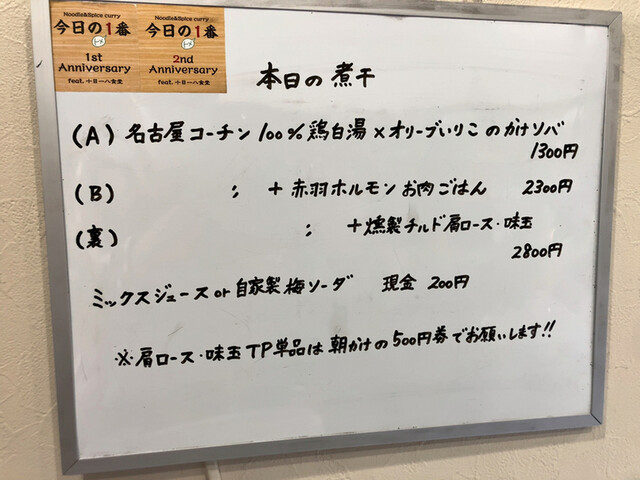 Noodle&Spice curry
今日の1番
1st
Anniversary
feat. 十日一八食堂
Noodle&Spice curry
今日の1番
2nd
Anniversary
feat. 十日一八食堂
本日の煮干
(A) 名古屋コーチン100%鶏白湯×オリーブいりこのかけソバ
1300円
(B) 〃 +赤羽ホルモンお肉ごはん 2300円
(裏) 〃 +燻製チルド肩ロース・味玉
2800円
ミックスジュースor自家製梅ソーダ 現金 200円
※肩ロース・味玉TP単品は朝かけの500円券でお願いします!!